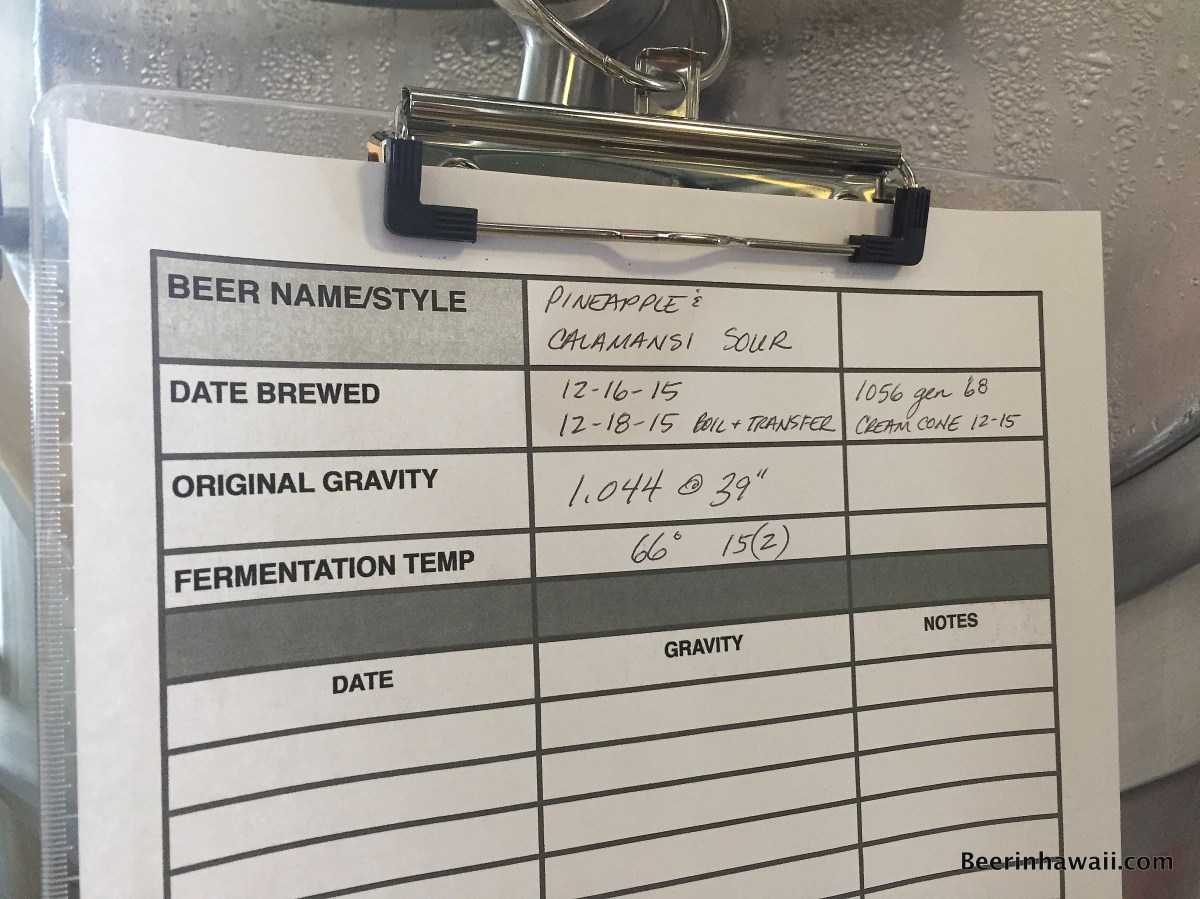 BEER NAME/STYLE
PINEAPPLE &
CALAMANSI SOUR
DATE BREWED
12-16-15
12-18-15 BOIL + TRANSFER
1056 gen 68
CREAM CONE 12-15
ORIGINAL GRAVITY
1.044 @ 39"
FERMENTATION TEMP
66° 15(2)
DATE
GRAVITY
NOTES
Beerinhawaii.com